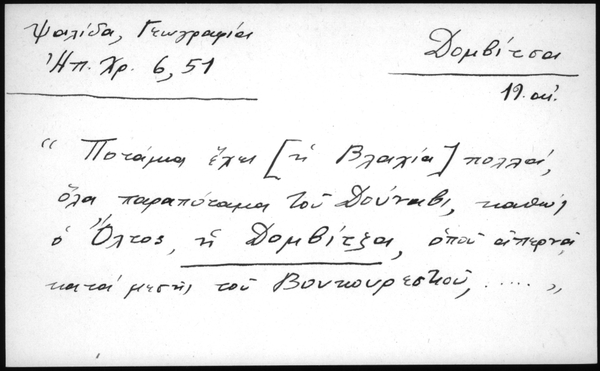 Ψαλίδα, Γεωγραφία
Ἠπ. Χρ. 6, 51
Δομβίτσα
19. αἰ.
“ Ποτάμια ἔχει [ἡ Βλαχία] πολλά,
ὅλα παραπόταμα τοῦ Δούναβι, καθώς
ὁ Ὄλτος, ἡ Δομβίτζα, ὁποῦ ἀπερνᾷ
κατά μεσῆς τοῦ Βουκουρεστίου, ..... „